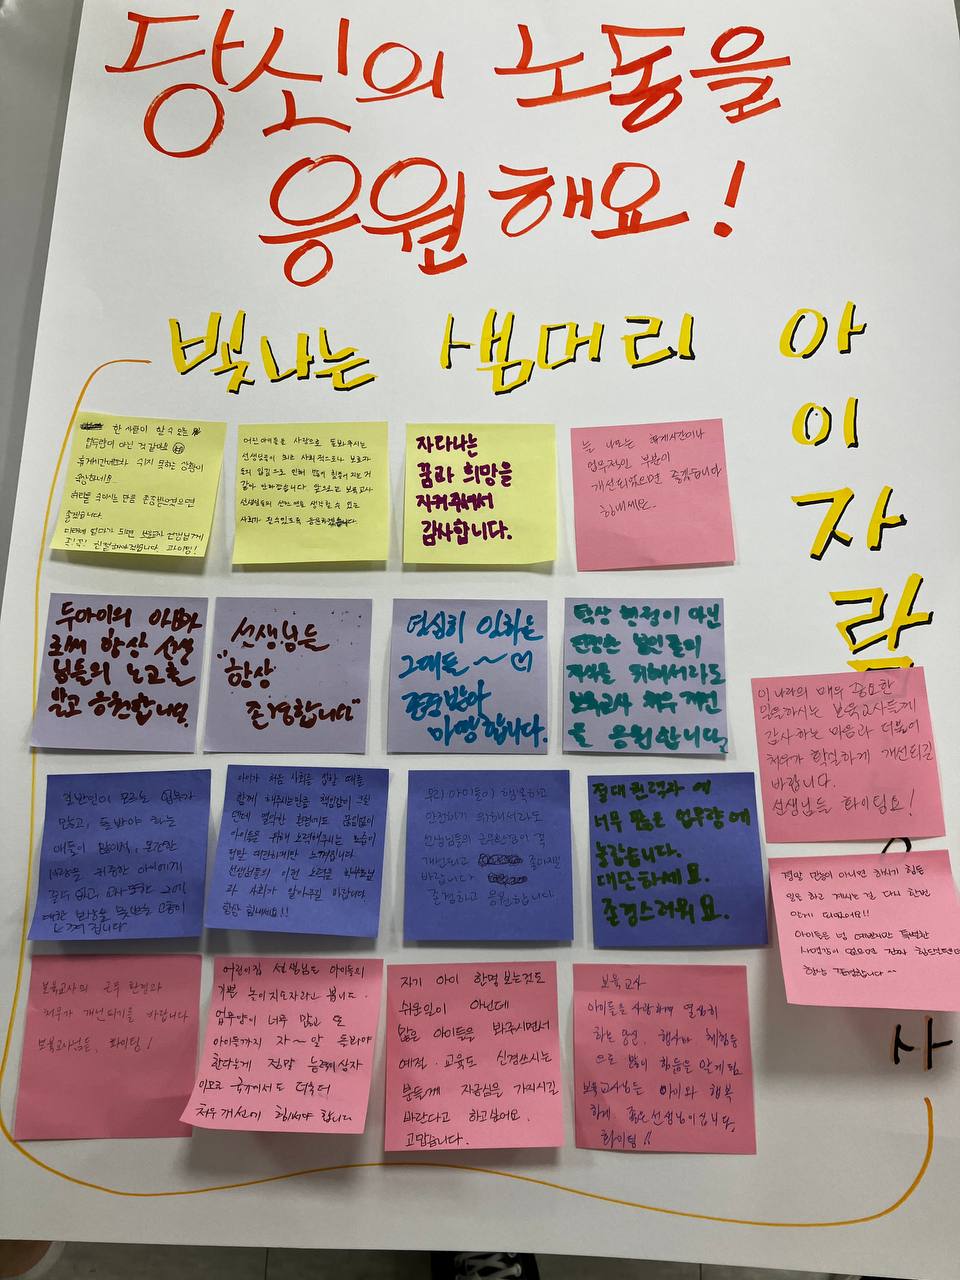 당신의 노동을
응원해요!
빛나는 샘머리 아이자람
한 사람이 할 수 있는
업무량이 아닌 것 같아요
휴게시간에도 쉬지 못하는 상황이
좋겠습니다.
화이팅!
어린 아이들을 사랑으로 돌봐주시는
사회가 될 수 있도록 응원하겠습니다.
자라나는
꿈과 희망을
지켜주셔서
감사합니다.
늘 나오는 휴게시간이나
업무적인 부분이
개선되었으면 좋겠습니다
힘내세요.
두아이의 아빠
로써 항상 선생
님들의 노고를
알고 응원합니다.
선생님들
"항상
존경합니다"
열심히 일하는
그대들 ~ ♡
존경받아
마땅합니다.
탁상 행정이 아닌
진정한 보인들의
자식을 위해서라도
보육교사 처우 개선
을 응원합니다.
이 나라의 매우 중요한
일을하시는 보육교사들께
감사하는 마음과 더불어
처우가 확실하게 개선되길
바랍니다.
선생님들 화이팅요!
일반인이 모르는 업무가
많고, 돌봐야 하는
느껴집니다
아이가 처음 사회를 접할 때를
함께 해주시는만큼 책임감이 크실
텐데 열악한 환경에도 끊임없이
아이들을 위해 노력해주시는 모습이
선생님들의 이런 노력을 학부모님
과 사회가 알아주길 바랍니다.
항상 힘내세요!!
우리 아이들이 행복하고
안전하기 위해서라도
선생님들의 근무환경이 꼭
개선되고 좋아지길
바랍니다
존경하고 응원합니다.
절대 권력과 에
너무 많은 업무량에
놀랐습니다.
대단하세요.
존경스러워요.
정말 만능이 아니면 하시기 힘든
일을 하고 계시는 걸 다시 한번
알게 되었어요!!
아이들을 넘 예뻐하지만 특별한
사명감이 없으면 진짜 힘드실텐데
항상 감사합니다^^
보육교사의 근무 환경과
처우가 개선되기를 바랍니다
보육교사님들, 화이팅!
어린이집 선생님도 아이들의
기쁜 놀이지도자라고 봅니다.
업무양이 너무 많고 또
아이들까지 자~알 돌봐야
한다는게 정말 능력자십시
이므로 국가에서도 더욱더
처우개선에 힘써야 합니다
자기 아이 한명 보는것도
쉬운일이 아닌데
많은 아이들을 봐주시면서
예절, 교육도 신경쓰시는
분들께 자긍심을 가지시길
바란다고 하고싶어요.
고맙습니다.
보육교사
아이들을 사랑하며 열심히
하는 당신, 행사와 체험등
으로 많이 힘듦을 알게됨.
보육교사님는 아이와 행복
하게 좋은 선생님이십니다.
화이팅!!
사